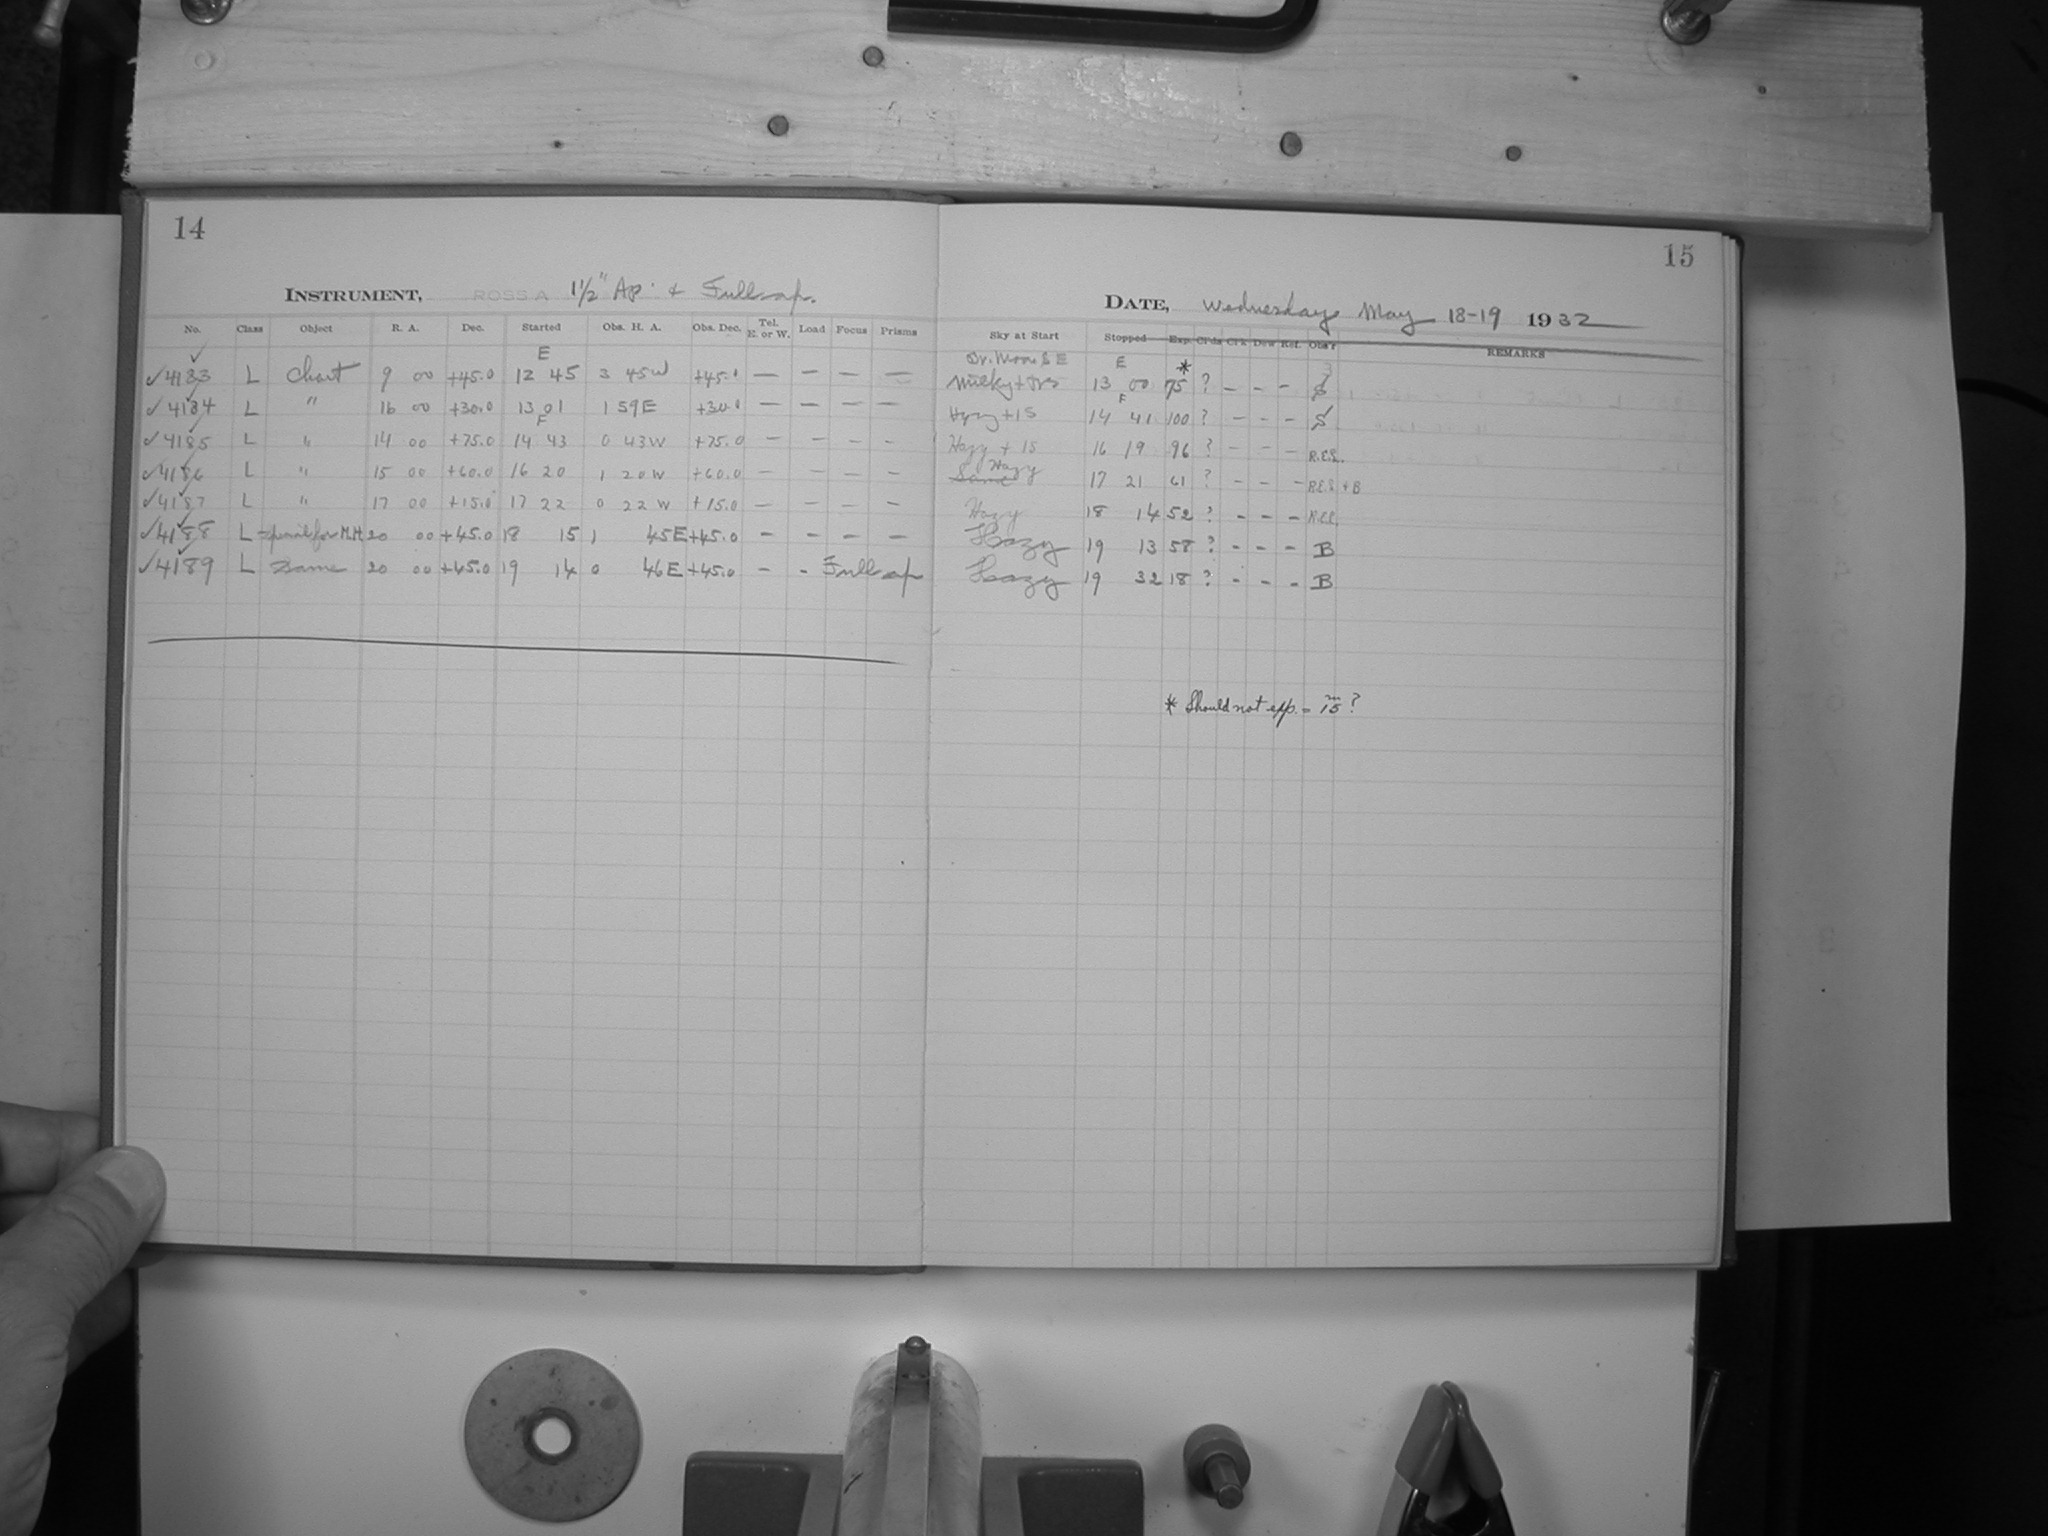 14
15
INSTRUMENT, ROSS A 1 1/2" Ap. & Full ap.
DATE, Wednesday May 18-19 1932
No. Class Object R. A. Dec. Started Obs. H. A. Obs. Dec. Tel. E. or W. Load Focus Prisms Sky at Start Stopped Exp. Cl'ds Cl'k Dew Ref. Obs'r REMARKS
E Dr. Moon S E E *
✓4183 L Chart 9 00 +45.0 12 45 3 45W +45.0 — — — — Milky + 15 00 75 ? — — — S
✓4184 L " 16 00 +30.0 13 01 1 59E +30.0 — — — — Hazy + 15 14 41 100 ? — — — S
F F
✓4185 L " 14 00 +75.0 14 43 0 43W +75.0 — — — — Hazy + 15 16 19 96 ? — — — R.E.S.
✓4186 L " 15 00 +60.0 16 20 1 20W +60.0 — — — — Same Hazy 17 21 61 ? — — — R.E.S. + B
✓4187 L " 17 00 +15.0 17 22 0 22 W +15.0 — — — — Hazy 18 14 52 ? — — — R.E.S.
✓4188 L special for M.H 20 00 +45.0 18 15 1 45E +45.0 — — — — Hazy 19 13 58 ? — — — B
✓4189 L Same 20 00 +45.0 19 14 0 46E +45.0 - - Full ap Hazy 19 32 18 ? - - - B
* Should not exp. = 15m ?